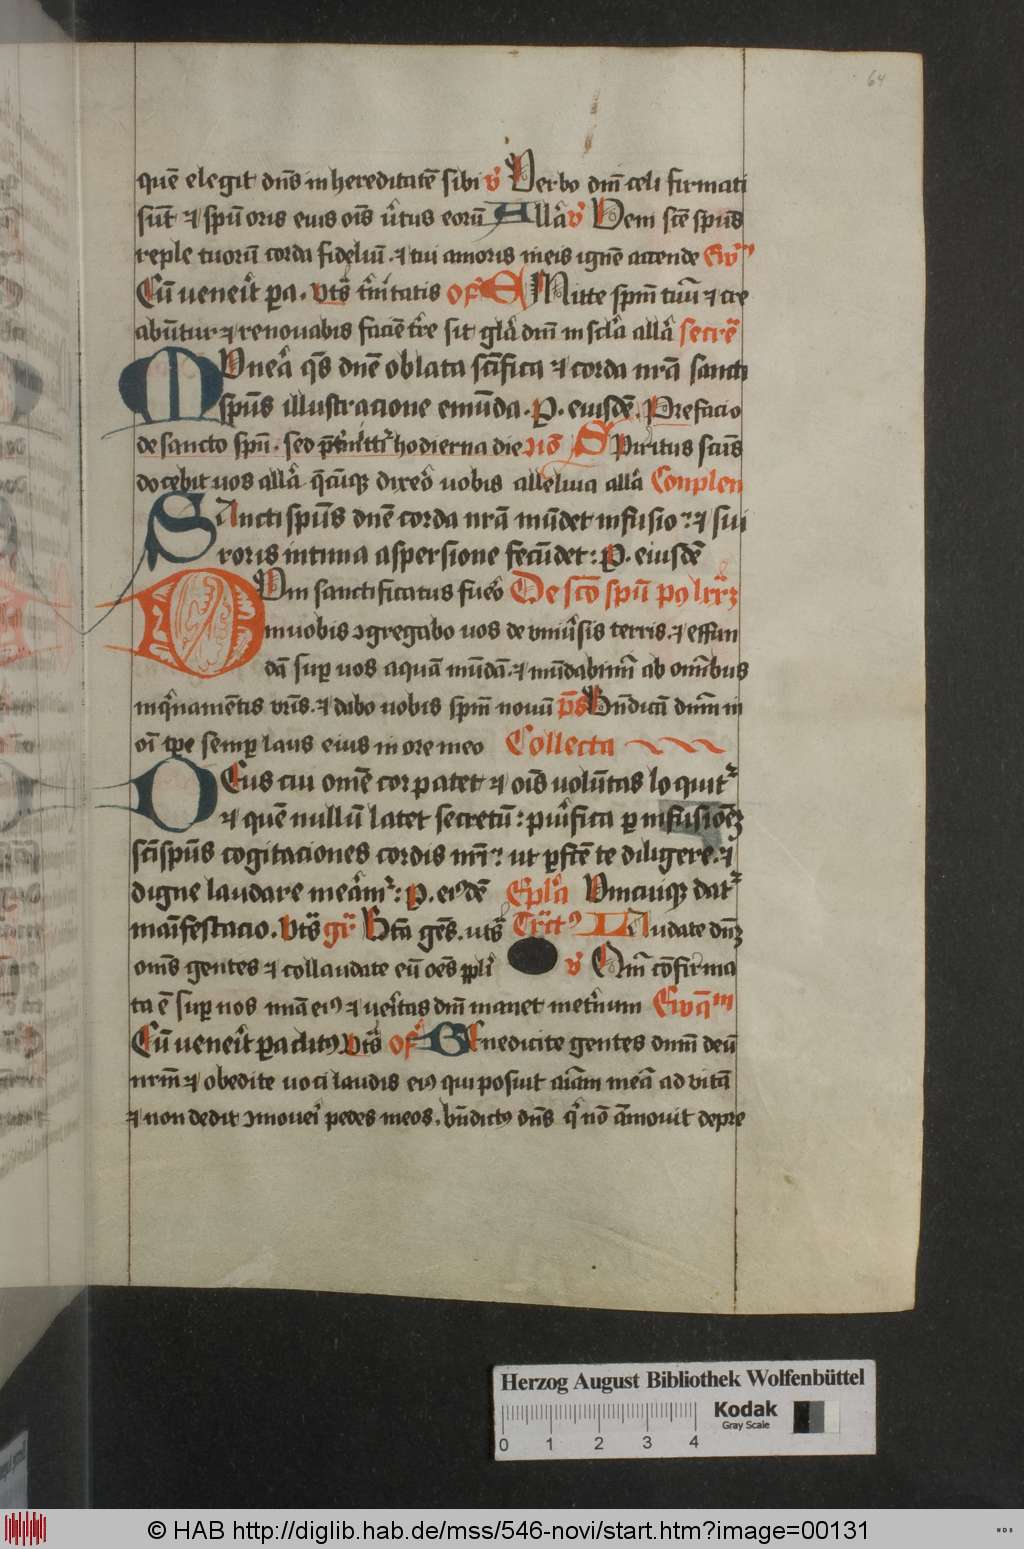 64
quē elegit dn̄s in hereditatē sibi v̾ Verbo dnī celi firmati
sūt ⁊ spū oris eius oīs v̾tus eorū Allā v̾ Veni scē spūs
reple tuorū corda fideliū ⁊ tui amoris in eis ignē accende Ewⁿ
Cū ueneīt pa. vts̄ t̄nitatis Of̄ Emitte spm̄ tuū ⁊ cre
abūtur ⁊ renouabis faciē tr̄e sit glā dnī in sclā allā secrē
Munēa qs̄ dnē oblata scīfica ⁊ corda nrā sancti
spūs illustracione emūda. P. eiusdē. Prefacio
de sancto spū. sed hodierna die nō Co Spiritus scūs
docebit uos allā q̄cūqꝫ dixeō uobis alleluia allā Conplen
Sancti spūs dnē corda nrā mūdet infusio: ⁊ sui
roris intima aspersione fecūdet: P. eiusdē
Dvm sanctificatus fueō De scō spū
in uobis ꝯgregabo uos de vniūsis terris. ⁊ effun
dā sup uos aquā mūdā. ⁊ mūdabimī ab omībus
inq̄namētis vrīs. ⁊ dabo uobis spm̄ nouū ps̄ Bn̄dicā dnm̄ in
oī tpe semp laus eius in ore meo Collecta
Deus cui omē cor patet ⁊ oīs uolūtas loquit᷑
⁊ quē nullū latet secretū: puīfica p infusionēꝫ
scī spūs cogitaciones cordis nrī: ut pfcē te diligere. ⁊
digne laudare meām᷑: P. eiꝰdē Eplā Vnicuiqꝫ dat᷑
maīfestacio. Vts̄ gr̄ Btā gēs. uts̄ Tr̄ctꝰ Laudate dnꝫ
omīs gentes ⁊ collaudate eū oēs pplī v̾ Qm̄ cōfirma
ta ē sup nos mīa eiꝰ ⁊ ueītas dnī manet in et̄num Ewāⁿ
Cū ueneīt paclitꝰ. vts̄ Of̄ Benedicite gentes dnm̄ deū
nrm̄ ⁊ obedite uoci laudis eiꝰ qui posuit aīam meā ad vitā
⁊ non dedit ꝯmoueī pedes meos. bn̄dictꝰ dn̄s q̄ nō āmouit depre
Herzog August Bibliothek Wolfenbüttel
Kodak
Gray Scale
0 1 2 3 4
© HAB http://diglib.hab.de/mss/546-novi/start.htm?image=00131